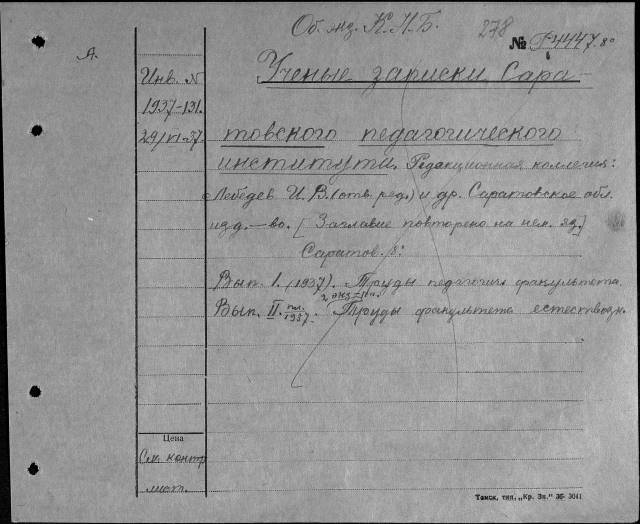 Об. экз. К.Н.Б.
278
№ Г4447.8°
А.
Инв. N
1937-131.
29/VI-37.
Ученые записки Сара-
товского педагогического
института. Редакционная коллегия:
Лебедев И. В. (отв. ред.) и др. Саратовское обл.
изд.-во. [Заглавие повторено на нем. яз.]
Саратов. 8:
Вып. I. (1937). Труды педагогич. факультета.
2 экз =
Вып. II. 1937. Труды факультета естествозн.
Цена
См. контр
лист.
Томск, тип. „Кр. Зн." 36- 3041